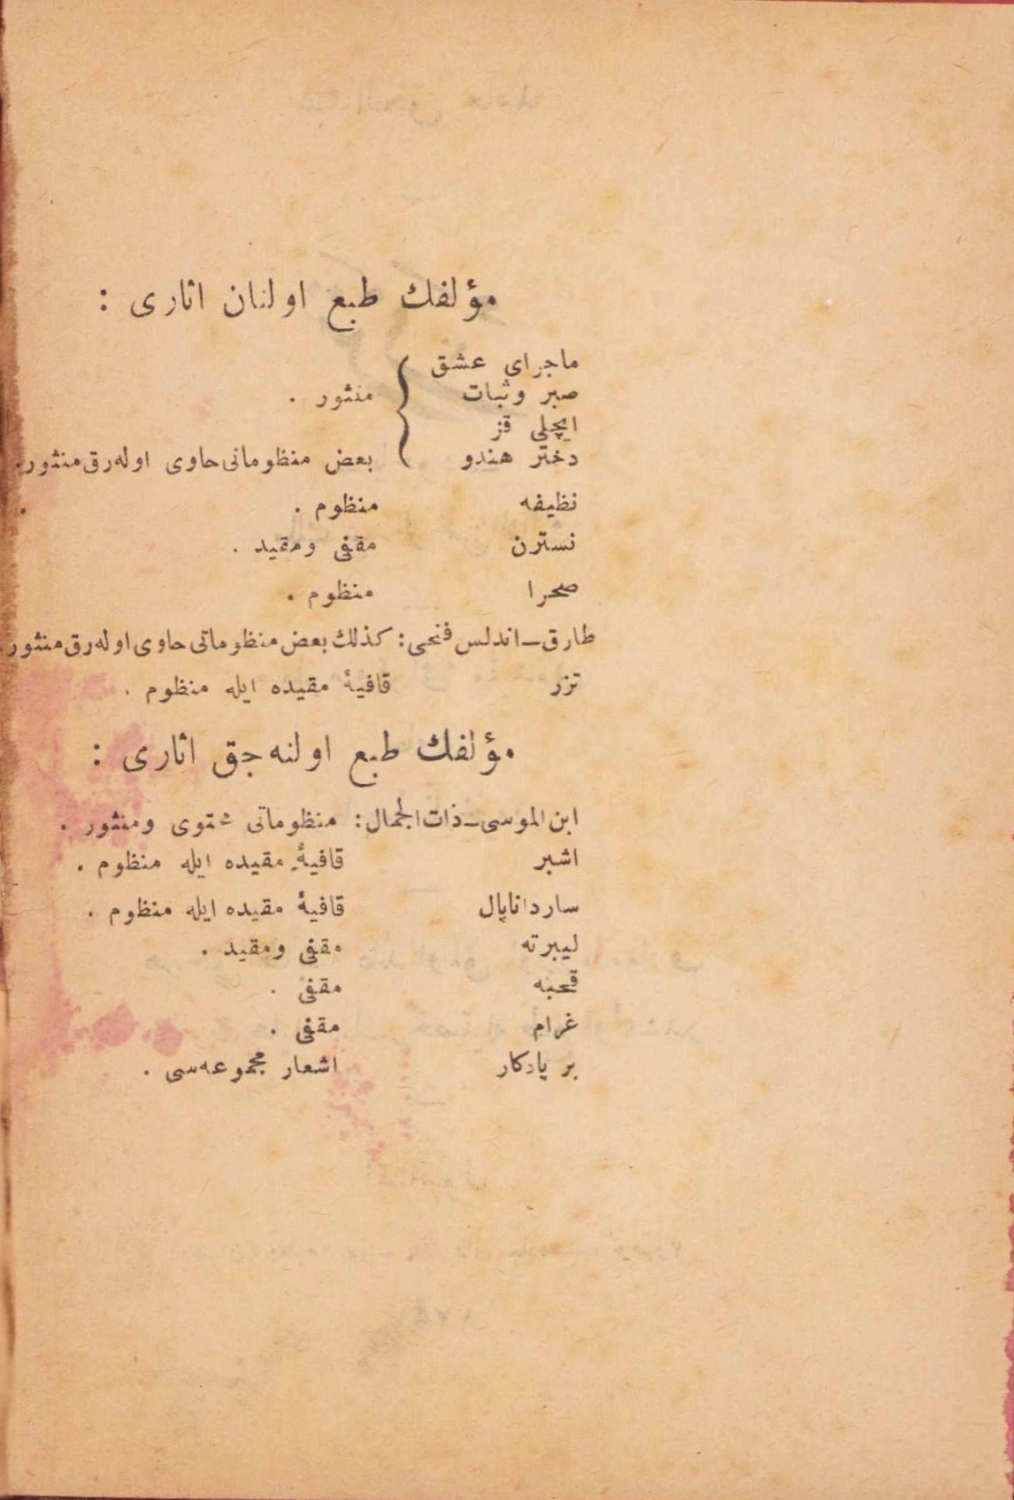 مؤلفك طبع اولنان اثاری :
ماجرای عشق
صبر وثبات منثور .
ایچلی قز
دختر هندو بعض منظوماتی حاوی اوله‌رق منثور .
نظیفه منظوم .
نسترن مقفی ومقید .
صحرا منظوم .
طارق ـ اندلس فتحی : كذلك بعض منظوماتی حاوی اوله‌رق منثور
تزر قافیهٔ مقیده ایله منظوم .
مؤلفك طبع اولنه‌جق اثاری :
ابن الموسی ـ ذات الجمال : منظوماتی محتوی ومنثور .
اشبر قافیهٔ مقیده ایله منظوم .
ساردا ناپال قافیهٔ مقیده ایله منظوم .
لیبرته مقفی ومقید .
قحبه مقفی .
غرام مقفی .
بر یادكار اشعار مجموعه‌سی .